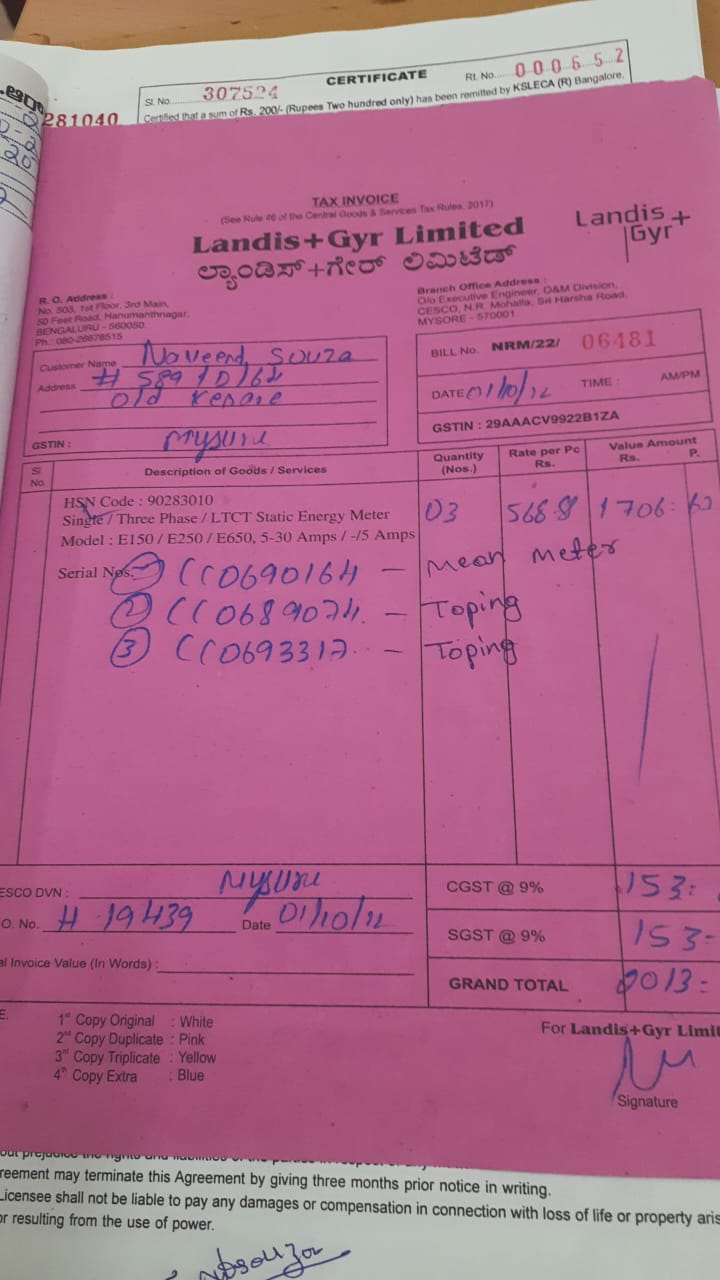 281040
CERTIFICATE
Sl. No. 307524
Rt. No. 000652
Certified that a sum of Rs. 200/- (Rupees Two hundred only) has been remitted by KSLECA (R) Bangalore.
TAX INVOICE
(See Rule 46 of the Central Goods & Services Tax Rules, 2017)
Landis+Gyr Limited
Landis+
Gyr
ಲ್ಯಾಂಡಿಸ್+ಗೇರ್ ಲಿಮಿಟೆಡ್
R. O. Address :
No. 505, 1st Floor, 3rd Main,
50 Feet Road, Hanumanthnagar,
BENGALURU - 560050.
Ph.: 080-26676515
Branch Office Address :
O/o Executive Engineer, O&M Division,
CESCO, N.R. Mohalla, Sri Harsha Road,
MYSORE - 570001.
Customer Name Naveend Souza
Address # 589/D/64
Old
Mysuru
GSTIN :
BILL No. NRM/22/ 06481
DATE 01/10/ TIME : AM/PM
GSTIN : 29AAACV9922B1ZA
Sl. No. Description of Goods / Services Quantity (Nos.) Rate per Pc Rs. Value Amount Rs. P.
HSN Code : 90283010
Single / Three Phase / LTCT Static Energy Meter 03 568.8 1706:
Model : E150 / E250 / E650, 5-30 Amps / -/5 Amps
Serial Nos. ① CC0690164 - Mean meter
② CC0689074. - Toping
③ CC0693317.. - Toping
ESCO DVN : Mysuru
CGST @ 9% 153:
O. No. # 19439 Date 01/10/
SGST @ 9% 153-
al Invoice Value (In Words) :
GRAND TOTAL 2013=
E.
1st Copy Original : White
2nd Copy Duplicate : Pink
3rd Copy Triplicate : Yellow
4th Copy Extra : Blue
For Landis+Gyr Limit
Signature
reement may terminate this Agreement by giving three months prior notice in writing.
Licensee shall not be liable to pay any damages or compensation in connection with loss of life or property aris
or resulting from the use of power.